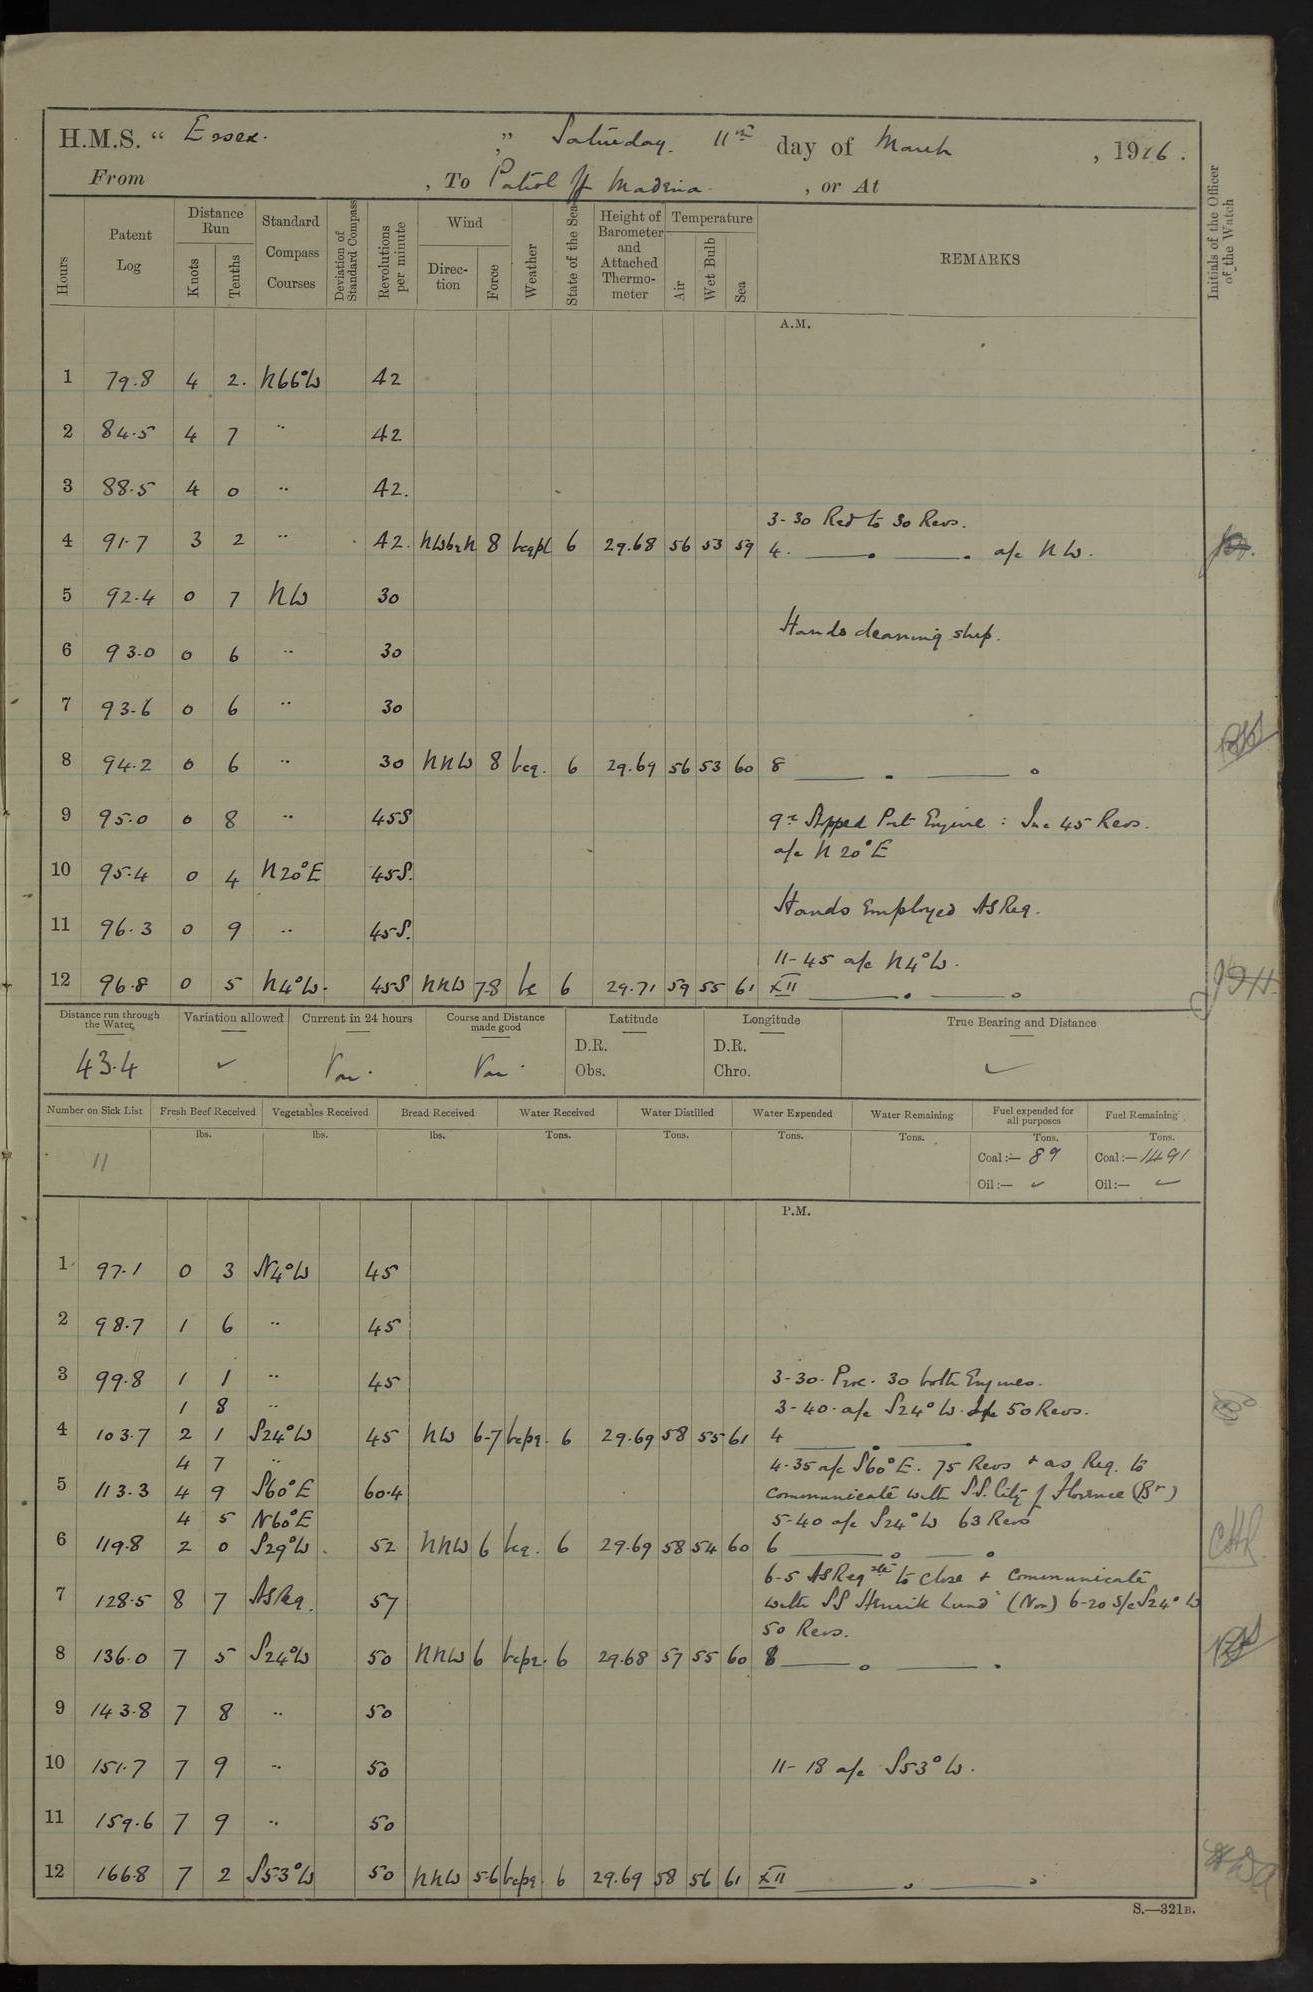 H.M.S. “ Essex. ” Saturday. 11th day of March , 1916.
From , To Patrol off Madeira. , or At
Hours Patent Log Distance Run Knots Tenths Standard Compass Courses Deviation of Standard Compass Revolutions per minute Wind Direction Force Weather State of the Sea Height of Barometer and Attached Thermometer Temperature Air Wet Bulb Sea REMARKS Initials of the Officer of the Watch
A.M.
1 79.8 4 2. N66°W 42
2 84.5 4 7 " 42
3 88.5 4 0 " 42.
3-30 Red to 30 Revs.
4 91.7 3 2 " 42. NWbyN 8 bcqpl 6 29.68 56 53 59 4. a/c NW.
5 92.4 0 7 NW 30
Hands cleaning ship.
6 93.0 0 6 " 30
7 93.6 0 6 " 30
8 94.2 0 6 " 30 NNW 8 bcq. 6 29.69 56 53 60 8
9 95.0 0 8 " 45S Stopped Port Engine : Inc 45 Revs.
a/c N20°E
10 95.4 0 4 N20°E 45S.
Hands Employed AsReq.
11 96.3 0 9 " 45S.
11-45 a/c N4°W.
12 96.8 0 5 N4°W. 45S NNW 7-8 bc 6 29.71 59 55 61 XII
Distance run through the Water, Variation allowed Current in 24 hours Course and Distance made good Latitude Longitude True Bearing and Distance
D.R. D.R.
43.4 ✓ Var. Var. Obs. Chro. ✓
Number on Sick List Fresh Beef Received Vegetables Received Bread Received Water Received Water Distilled Water Expended Water Remaining Fuel expended for all purposes Fuel Remaining
lbs. lbs. lbs. Tons. Tons. Tons. Tons. Tons. Tons.
11 Coal:— 89 Coal:—1491
Oil:— ✓ Oil:— ✓
P.M.
1 97.1 0 3 N4°W 45
2 98.7 1 6 " 45
3 99.8 1 1 " 45 3-30. Proc. 30 both Engines.
1 8 " 3-40. a/c S24°W. 50 Revs.
4 103.7 2 1 S24°W 45 NW 6-7 bcpq. 6 29.69 58 55 61 4
4 7 " 4-35 a/c S60°E. 75 Revs & as Req. to
5 113.3 4 9 S60°E 60.4 communicate with S.S. City of Florence (Br)
4 5 N60°E 5-40 a/c S24°W 63 Revs
6 119.8 2 0 S29°W. 52 NNW 6 bcq. 6 29.69 58 54 60 6
6-5 AsReqste to close & communicate
7 128.5 8 7 AsReq. 57 with SS Henrik Lund" (Nor) 6-20 S/c S24°W
50 Revs.
8 136.0 7 5 S24°W 50 NNW 6 bcpq. 6 29.68 57 55 60 8
9 143.8 7 8 " 50
10 151.7 7 9 " 50 11-18 a/c S53°W.
11 159.6 7 9 " 50
12 166.8 7 2 S53°W 50 NNW 5-6 bcpq. 6 29.69 58 56 61 XII
S.—321B.